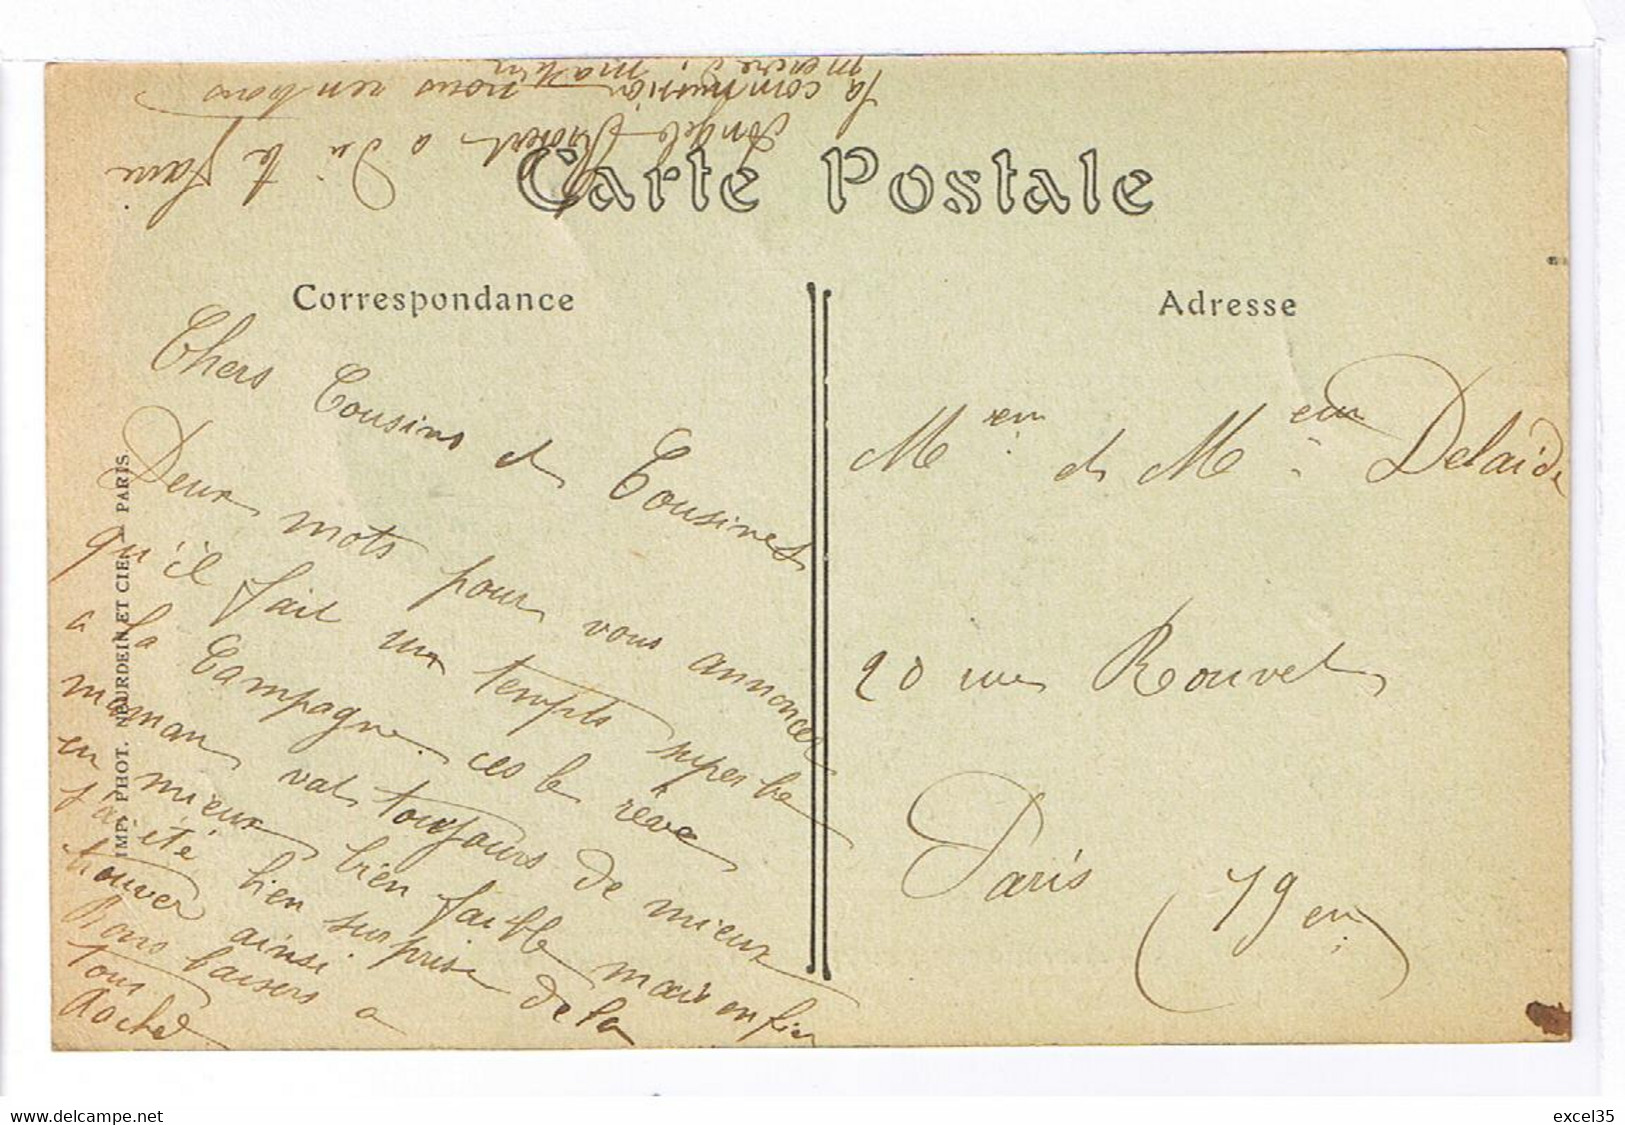 Carte Postale
Correspondance
Adresse
Chers Cousins et Cousines
Deux mots pour vous annoncer
qu'il fait un temps superbe
a la Campagne ces le rêve
maman vat toujours de mieux
en mieux bien faible mais enfin
j'ai été bien surprise de la
trouver ainsi.
Bons baisers a
tous
Mr et Mr Delaide
20 rue Rouvet
Paris (19 em)
a du te faire
la commission nous rentrons
mercredi matin
IMP. PHOT. NEURDEIN ET CIE. PARIS
www.delcampe.net
excel35